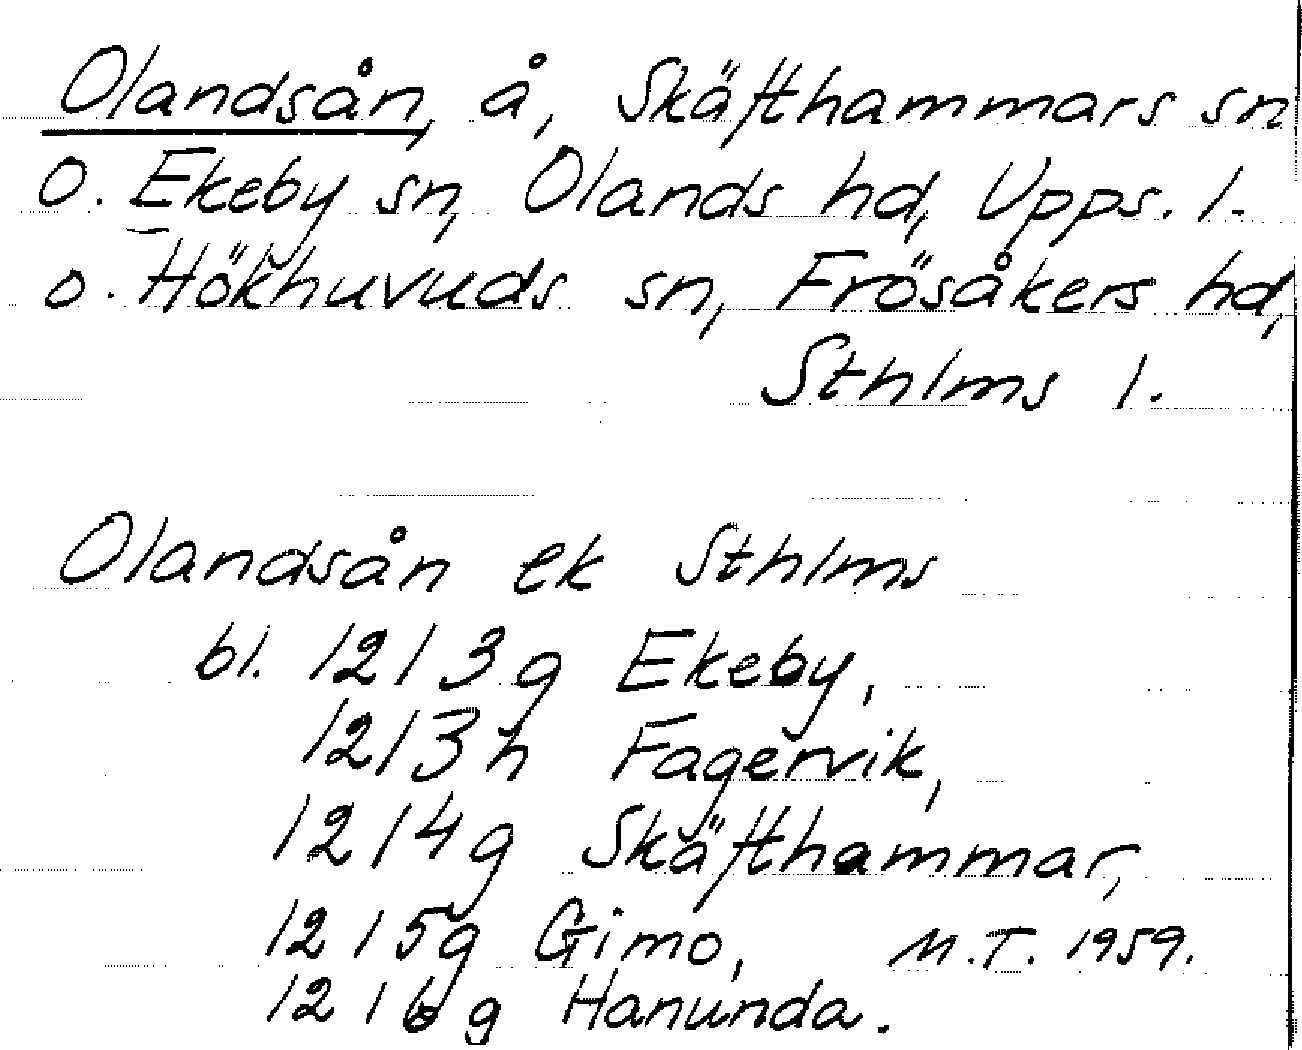 Olandsån, å, Skäfthammars sn
o. Ekeby sn, Olands hd, Upps. l.
o. Hökhuvuds sn, Frösåkers hd,
Sthlms l.
Olandsån ek Sthlms
bl. 1213g Ekeby,
1213h Fagervik,
1214g Skäfthammar,
1215g Gimo, M.T. 1959.
1216g Hanunda.